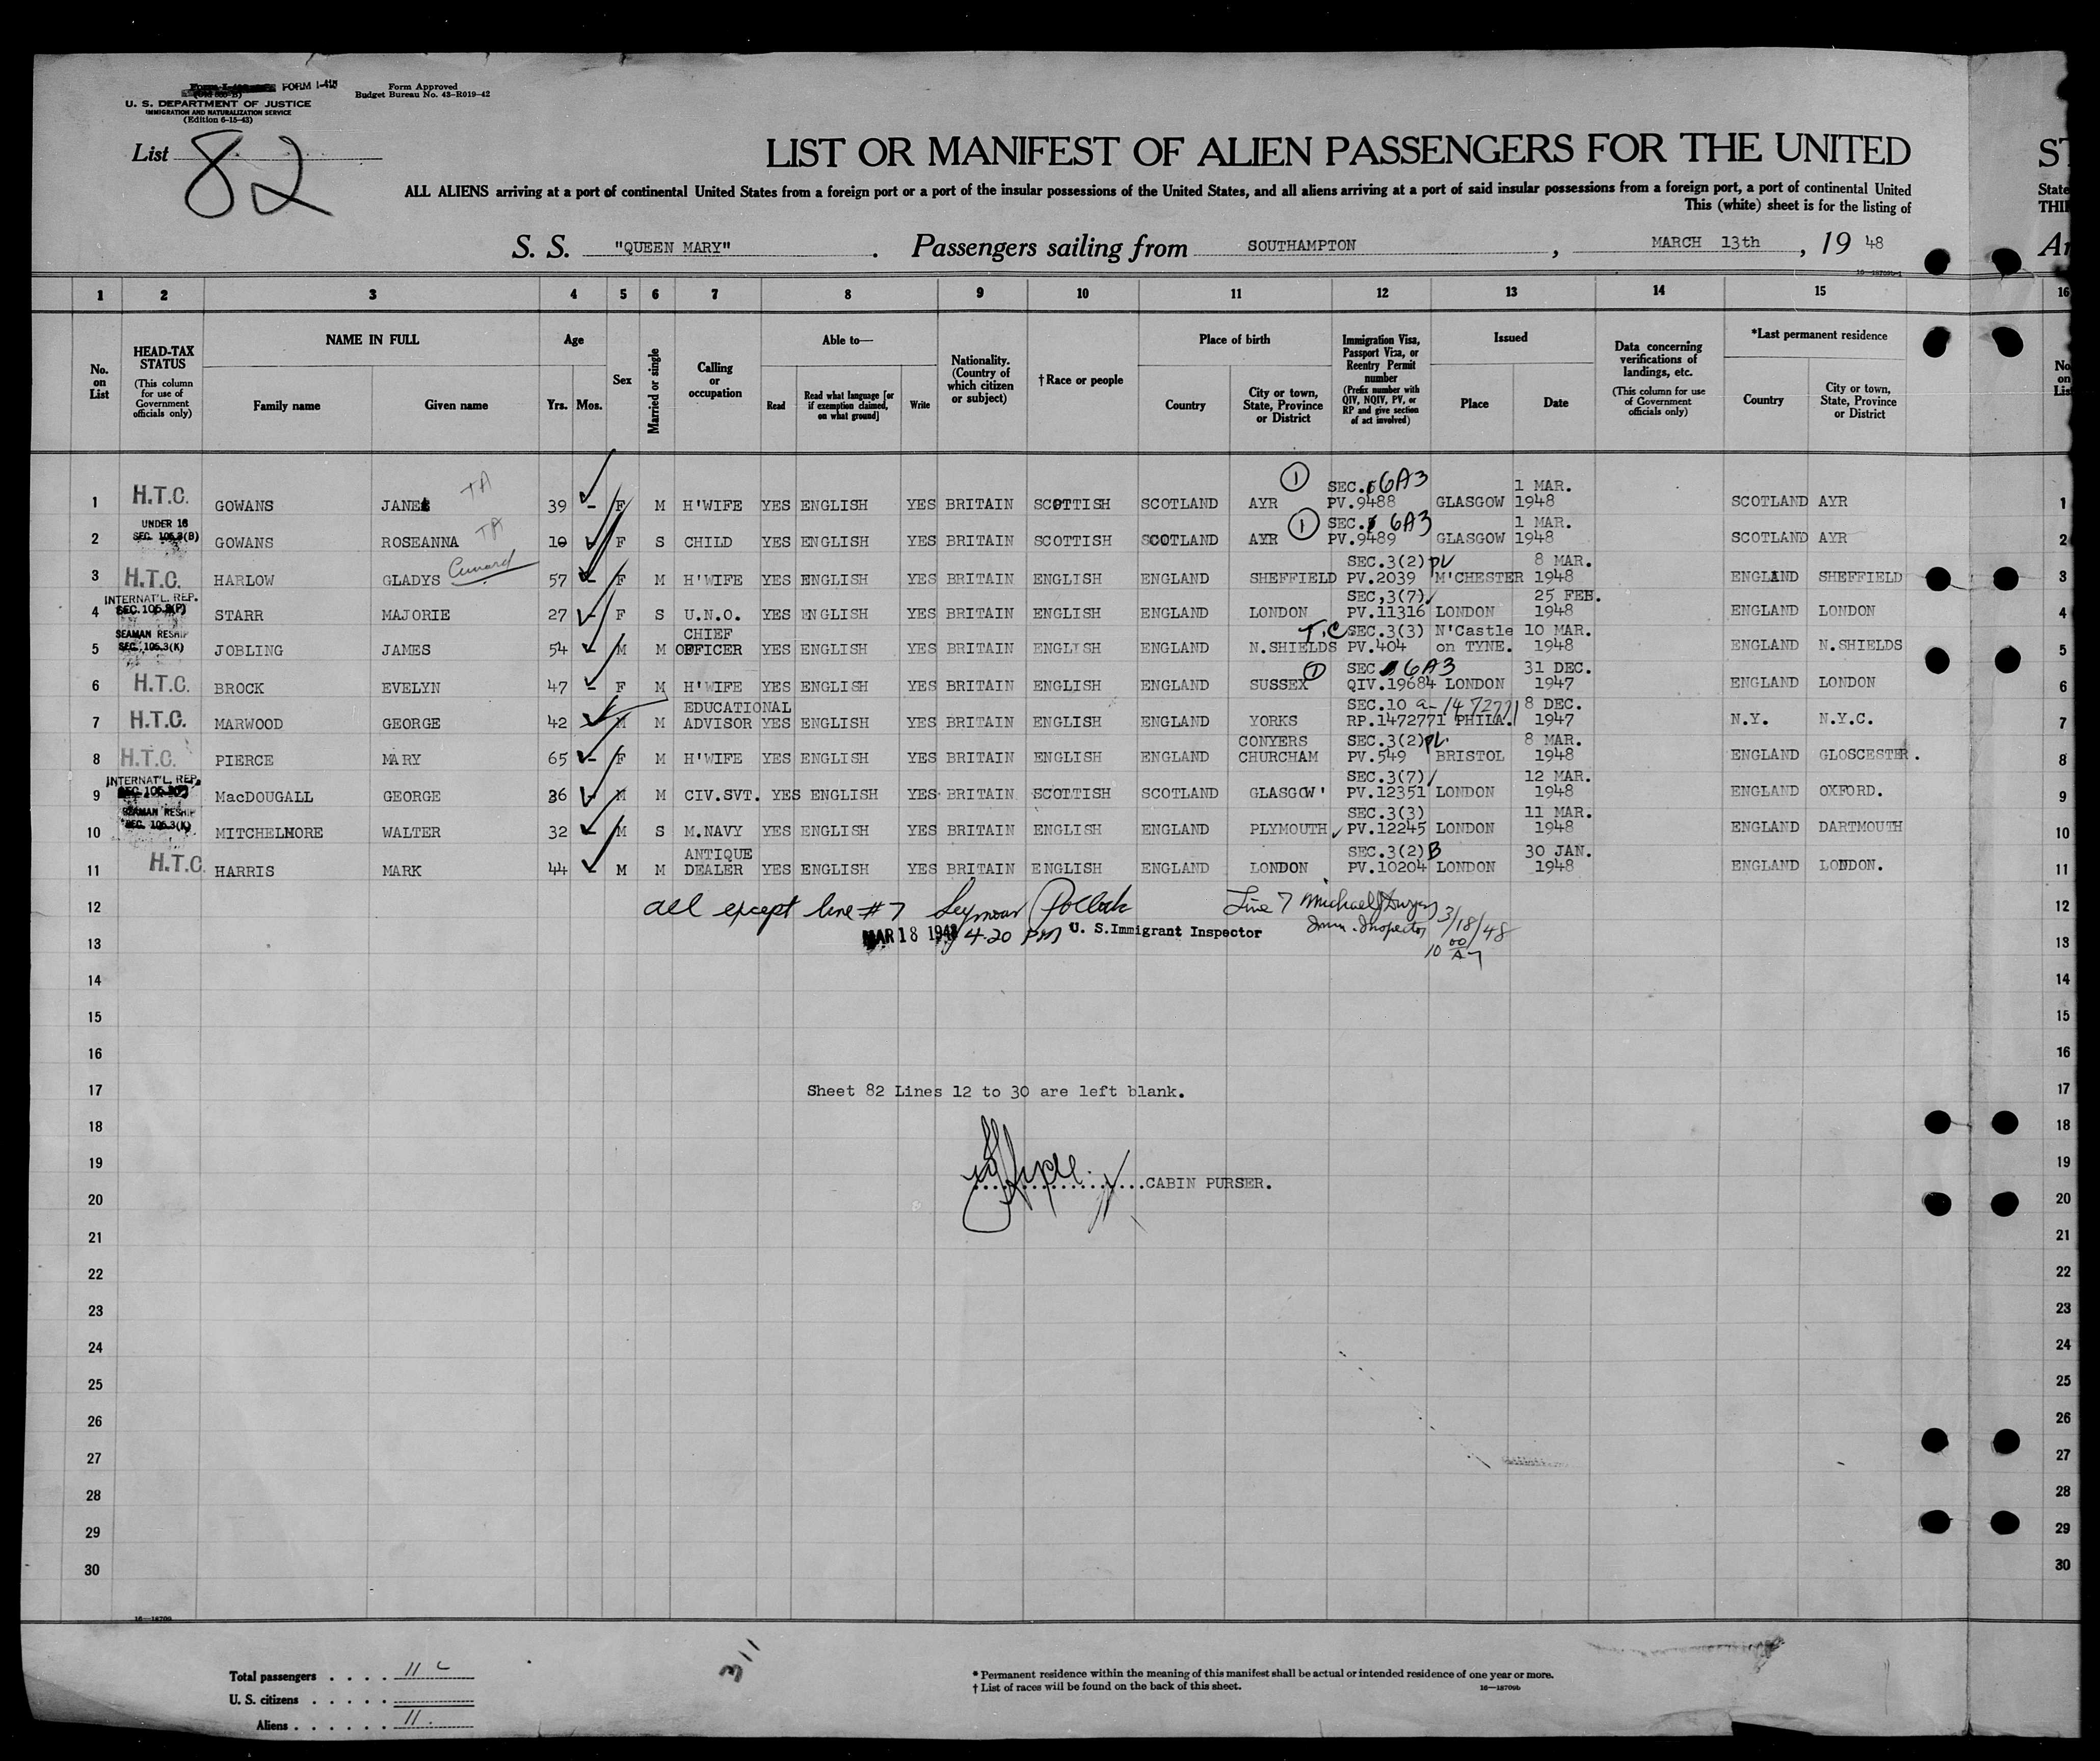 FORM I-415
Form Approved
Budget Bureau No. 43-R019-42
U. S. DEPARTMENT OF JUSTICE
IMMIGRATION AND NATURALIZATION SERVICE
(Edition 6-15-43)
List 82
LIST OR MANIFEST OF ALIEN PASSENGERS FOR THE UNITED
ALL ALIENS arriving at a port of continental United States from a foreign port or a port of the insular possessions of the United States, and all aliens arriving at a port of said insular possessions from a foreign port, a port of continental United
This (white) sheet is for the listing of
S. S. "QUEEN MARY". Passengers sailing from SOUTHAMPTON, MARCH 13th, 19 48
1 2 3 4 5 6 7 8 9 10 11 12 13 14 15 16
No. on List
HEAD-TAX STATUS (This column for use of Government officials only)
NAME IN FULL Family name Given name
Age Yrs. Mos.
Sex
Married or single
Calling or occupation
Able to— Read Read what language [or if exemption claimed, on what ground] Write
Nationality. (Country of which citizen or subject)
†Race or people
Place of birth Country City or town, State, Province or District
Immigration Visa, Passport Visa, or Reentry Permit number (Prefix number with QIV, NQIV, PV, or RP and give section of act involved)
Issued Place Date
Data concerning verifications of landings, etc. (This column for use of Government officials only)
*Last permanent residence Country City or town, State, Province or District
1 H.T.C. GOWANS JANE TA 39 - F M H'WIFE YES ENGLISH YES BRITAIN SCOTTISH SCOTLAND AYR 1 SEC. 6A3 PV.9488 GLASGOW 1 MAR. 1948 SCOTLAND AYR 1
2 UNDER 16 SEC. 105.3(B) GOWANS ROSEANNA TA 10 F S CHILD YES ENGLISH YES BRITAIN SCOTTISH SCOTLAND AYR 1 SEC. 6A3 PV.9489 GLASGOW 1 MAR. 1948 SCOTLAND AYR 2
3 H.T.C. HARLOW GLADYS Cunard 57 - F M H'WIFE YES ENGLISH YES BRITAIN ENGLISH ENGLAND SHEFFIELD SEC.3(2) PV PV.2039 M'CHESTER 8 MAR. 1948 ENGLAND SHEFFIELD 3
4 INTERNAT'L. REP. SEC.105.3(P) STARR MAJORIE 27 - F S U.N.O. YES ENGLISH YES BRITAIN ENGLISH ENGLAND LONDON SEC,3(7) PV.11316 LONDON 25 FEB. 1948 ENGLAND LONDON 4
5 SEAMAN RESHIP SEC. 105.3(K) JOBLING JAMES 54 - M M CHIEF OFFICER YES ENGLISH YES BRITAIN ENGLISH ENGLAND N.SHIELDS T.C SEC.3(3) PV.404 N'Castle on TYNE. 10 MAR. 1948 ENGLAND N.SHIELDS 5
6 H.T.C. BROCK EVELYN 47 - F M H'WIFE YES ENGLISH YES BRITAIN ENGLISH ENGLAND SUSSEX 1 SEC 6A3 QIV.19684 LONDON 31 DEC. 1947 ENGLAND LONDON 6
7 H.T.C. MARWOOD GEORGE 42 M M EDUCATIONAL ADVISOR YES ENGLISH YES BRITAIN ENGLISH ENGLAND YORKS SEC.10 a-1472771 RP.1472771 PHILA. 8 DEC. 1947 N.Y. N.Y.C. 7
8 H.T.C. PIERCE MARY 65 - F M H'WIFE YES ENGLISH YES BRITAIN ENGLISH ENGLAND CONYERS CHURCHAM SEC.3(2) PV. PV.549 BRISTOL 8 MAR. 1948 ENGLAND GLOSCESTER. 8
9 INTERNAT'L. REP. MacDOUGALL GEORGE 36 - M M CIV.SVT. YES ENGLISH YES BRITAIN SCOTTISH SCOTLAND GLASGOW SEC.3(7) PV.12351 LONDON 12 MAR. 1948 ENGLAND OXFORD. 9
10 SEAMAN RESHIP SEC. 105.3(K) MITCHELMORE WALTER 32 - M S M.NAVY YES ENGLISH YES BRITAIN ENGLISH ENGLAND PLYMOUTH SEC.3(3) PV.12245 LONDON 11 MAR. 1948 ENGLAND DARTMOUTH 10
11 H.T.C. HARRIS MARK 44 - M M ANTIQUE DEALER YES ENGLISH YES BRITAIN ENGLISH ENGLAND LONDON SEC.3(2) B PV.10204 LONDON 30 JAN. 1948 ENGLAND LONDON. 11
12 all except line #7 Seymour Pollack Line 7 Michael J Dwyer 12
13 MAR 18 1948 4.20 PM U. S. Immigrant Inspector Imm. Inspector 3/18/48 10 00 13
14 14
15 15
16 16
17 Sheet 82 Lines 12 to 30 are left blank. 17
18 18
19 19
CABIN PURSER.
20 20
21 21
22 22
23 23
24 24
25 25
26 26
27 27
28 28
29 29
30 30
Total passengers 11
U. S. citizens
Aliens 11
311
* Permanent residence within the meaning of this manifest shall be actual or intended residence of one year or more.
† List of races will be found on the back of this sheet.
16—18709b